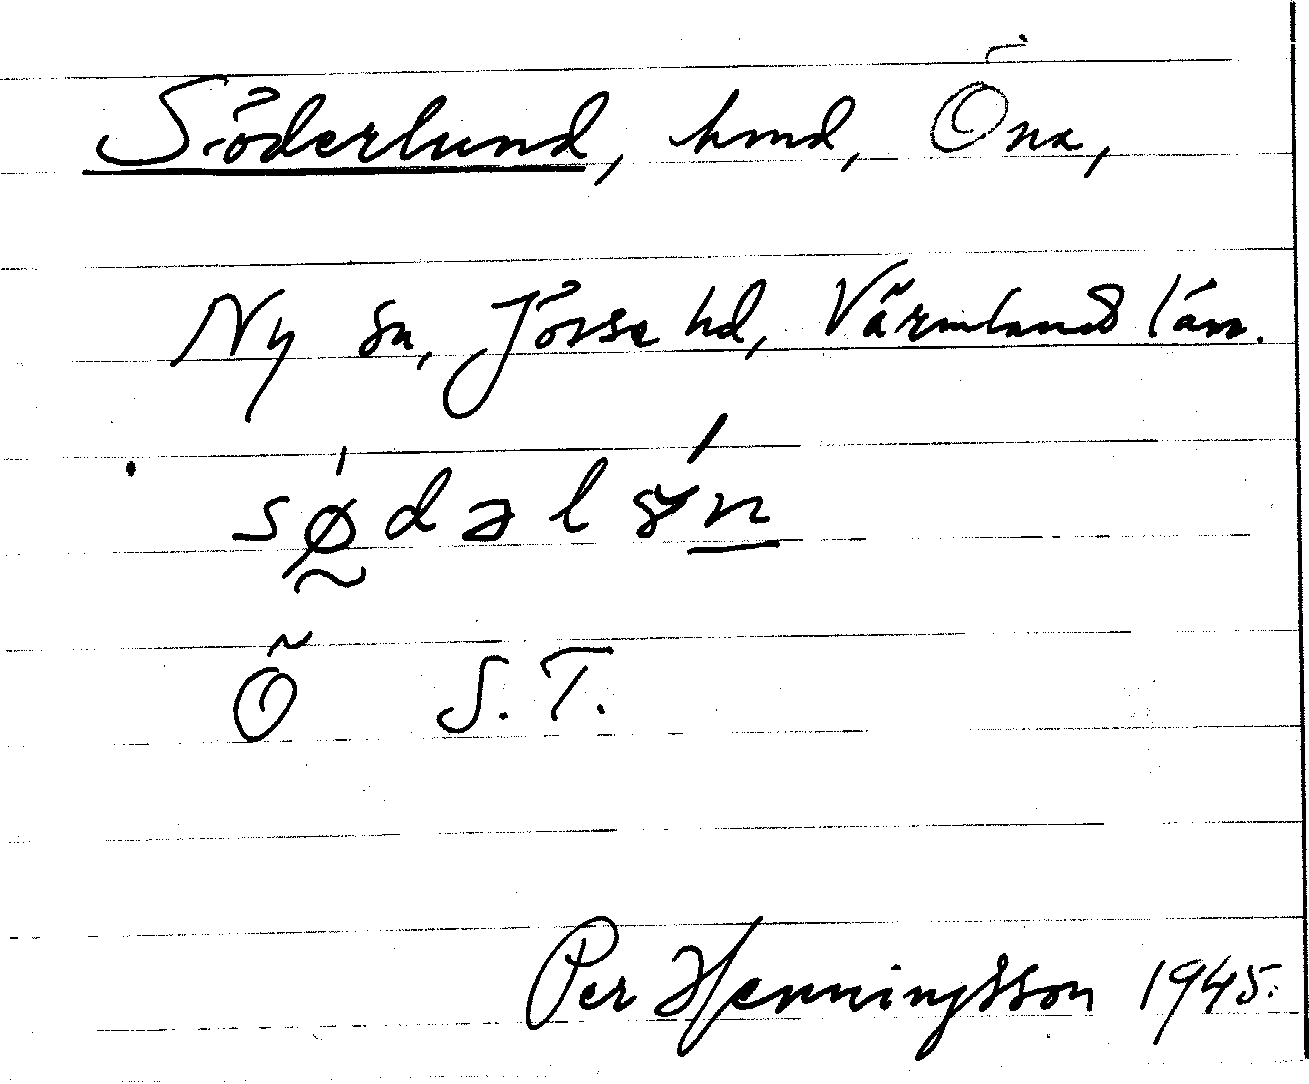 Söderlund, hmd, Öna,
Ny sn, Jösse hd, Värmlands län.
Ö S.T.
Per Henningsson 1945.